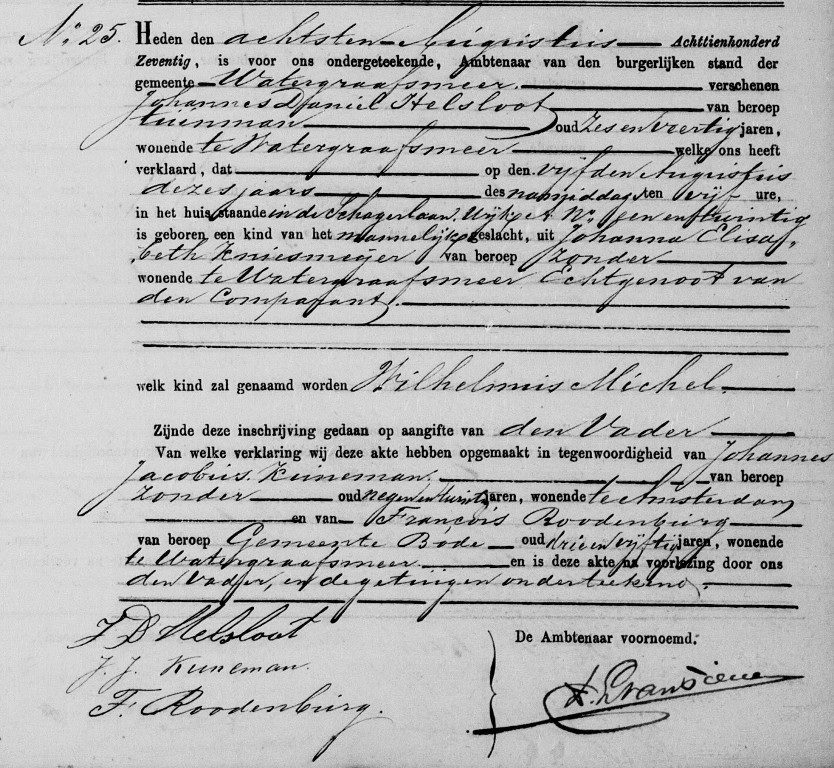 No. 25. Heden den achtsten Augustus Achttienhonderd
Zeventig, is voor ons ondergeteekende, Ambtenaar van den burgerlijken stand der
gemeente Watergraafsmeer. verschenen
Johannes Daniel Helsloot van beroep
tuinman oud zes en veertig jaren,
wonende te Watergraafsmeer welke ons heeft
verklaard, dat op den vijfden Augustus
dezes jaars des namiddags ten vijf ure,
in het huis, staande in de Schagerlaan Wijk A No. een en twintig
is geboren een kind van het mannelijk geslacht, uit Johanna Elisa„
„beth Kniesmeijer van beroep zonder
wonende te Watergraafsmeer Echtgenoot van
den Comparant.
welk kind zal genaamd worden Wilhelmus Michel.
Zijnde deze inschrijving gedaan op aangifte van den Vader
Van welke verklaring wij deze akte hebben opgemaakt in tegenwoordigheid van Johannes
Jacobus Kuneman. van beroep
zonder oud negen en twintig jaren, wonende te Amsterdam
en van François Roodenburg
van beroep Gemeente Bode oud drie en vijftig jaren, wonende
te Watergraafsmeer en is deze akte na voorlezing door ons
den vader, en de getuigen onderteekend.
J D Helsloot
De Ambtenaar voornoemd.
J. J. Kuneman.
F. Roodenburg.